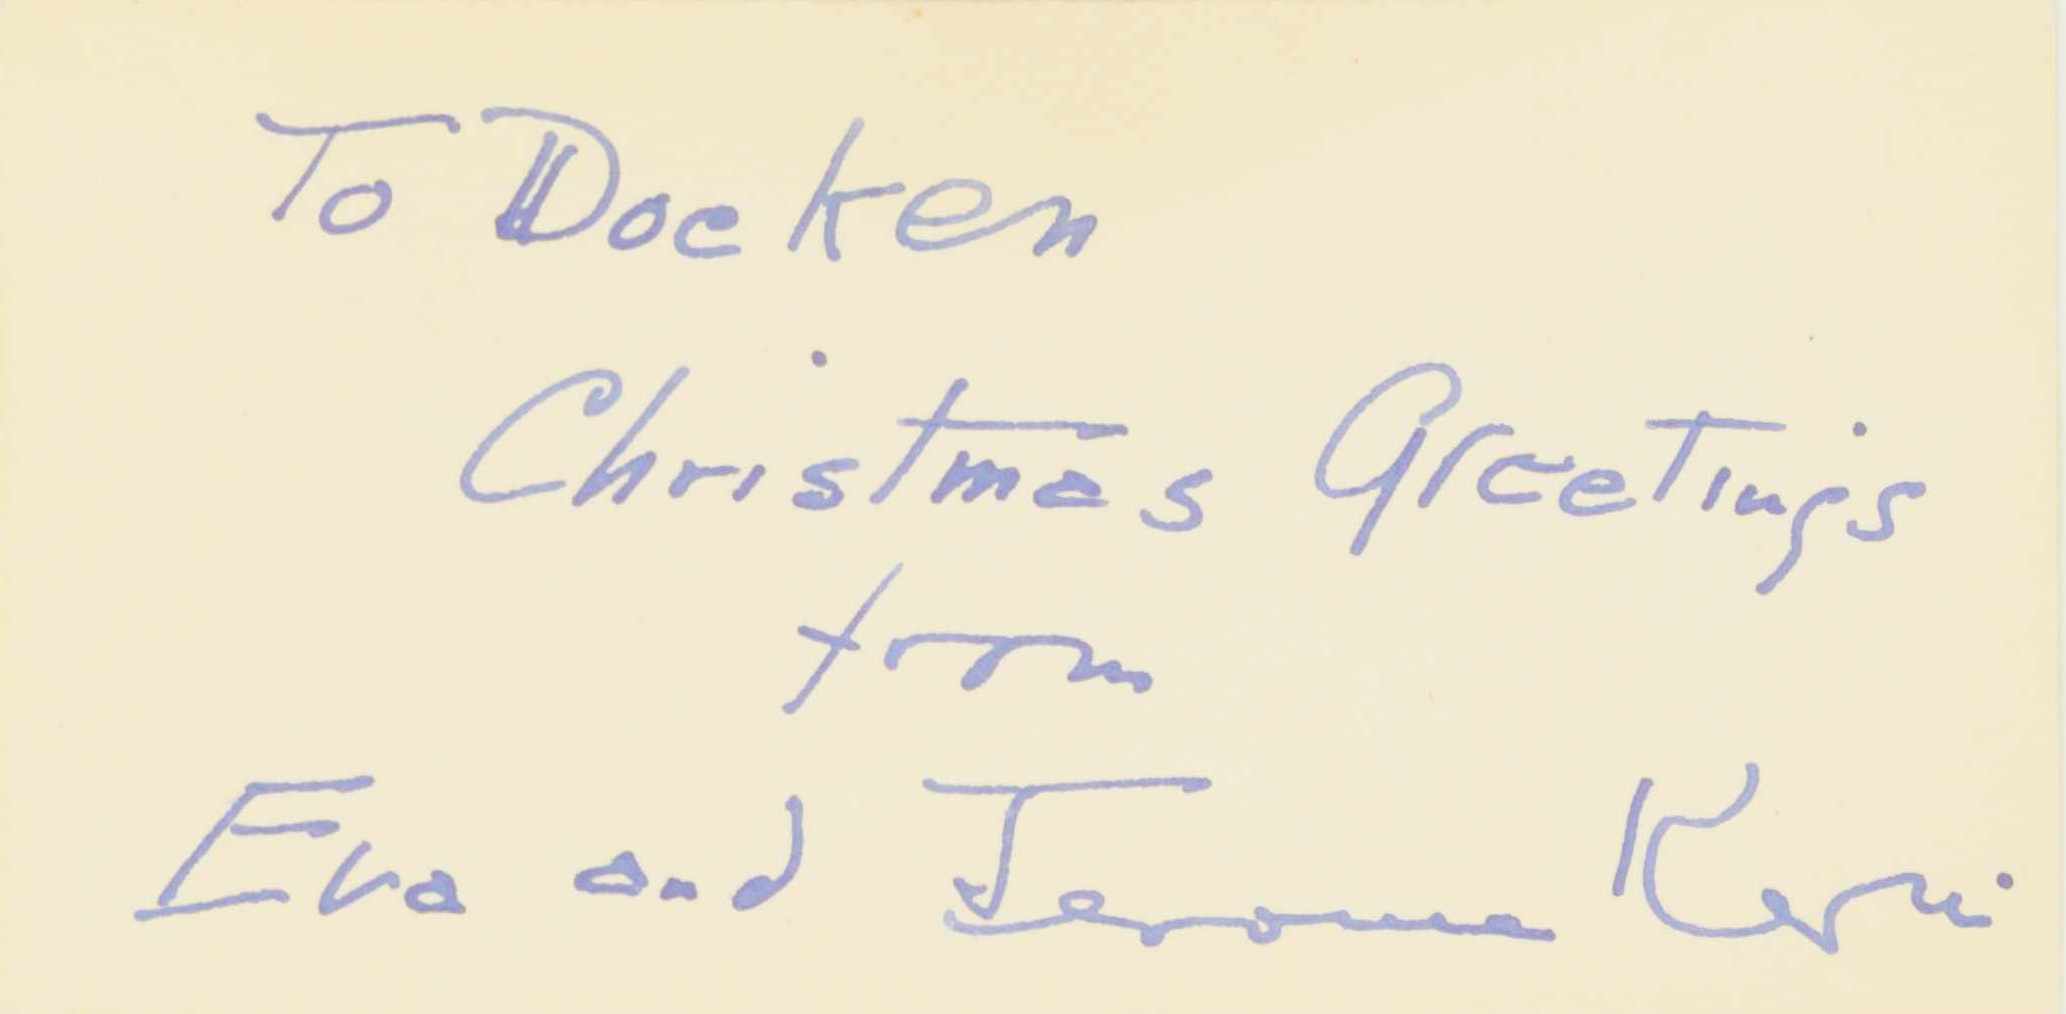 To Docken
Christmas Greetings
from
Eva and Jerome Kern